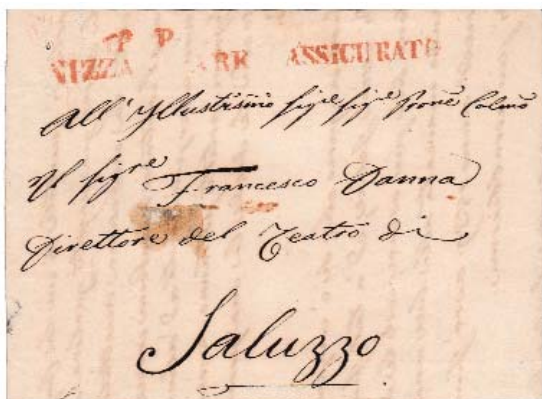 P. P.
NIZZA ARE ASSICURATO
All' Yllustrisimo sigre sigre Prone Colmo
Il sigre Francesco Danna
Direttore del Teatro di
Saluzzo